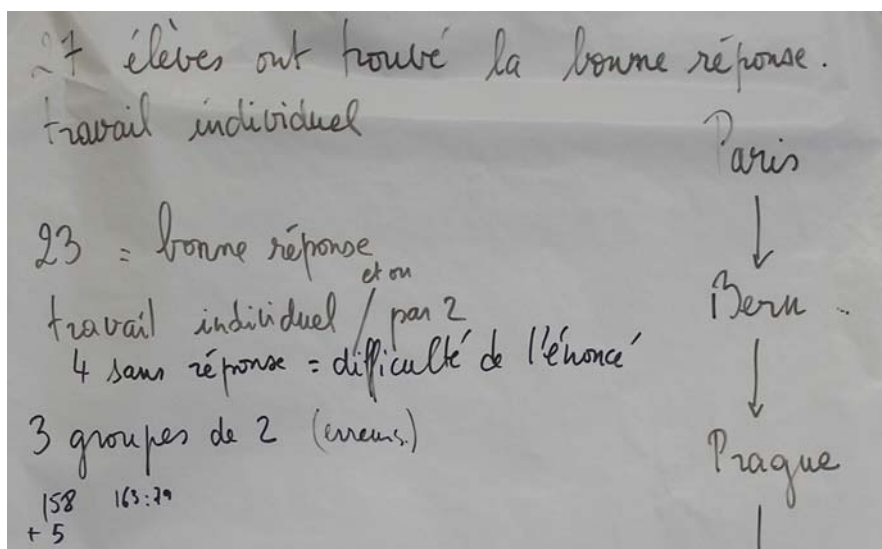 27 élèves ont trouvé la bonne réponse.
travail individuel
23 = bonne réponse
et ou
travail individuel / par 2
4 sans réponse = difficulté de l'énoncé
3 groupes de 2 (erreurs.)
158 163:79
+ 5
Paris
Bern
Prague